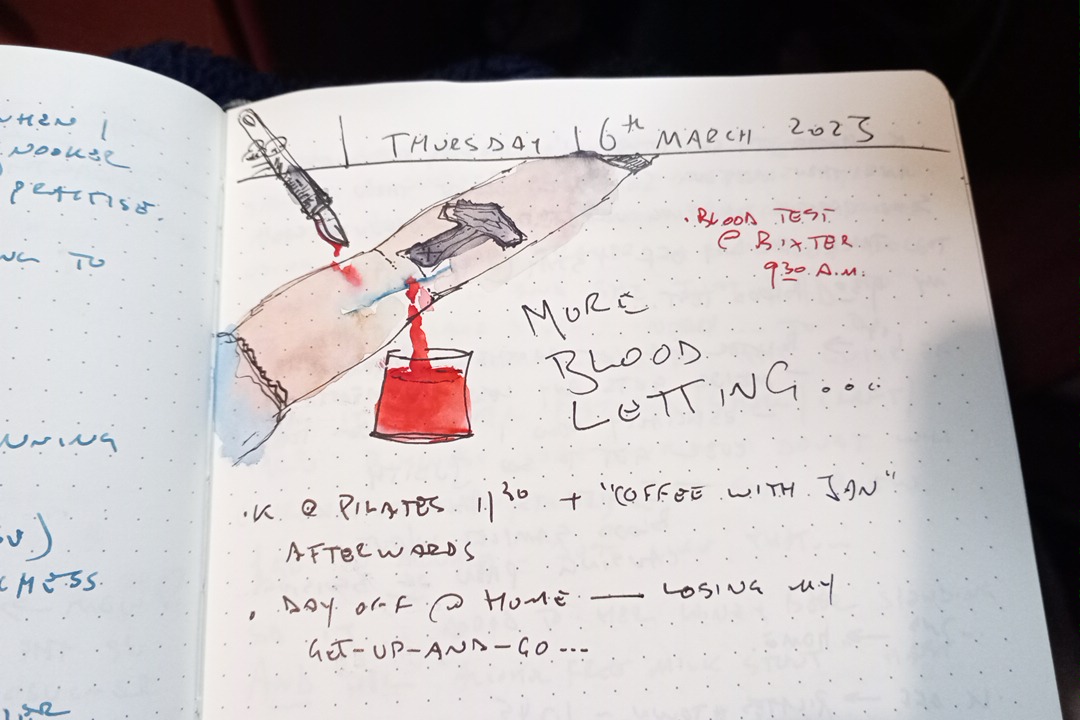 WHEN I
NOOKER
PRACTISE.
NG TO
NNING
CHESS.
THURSDAY 16th MARCH 2023
• BLOOD TEST
@ BIXTER
9 30 A.M.
MORE
BLOOD
LETTING....
• K @ PILATES 11 30 + "COFFEE WITH JAN"
AFTERWARDS
• DAY OFF @ HOME — LOSING MY
GET-UP-AND-GO...